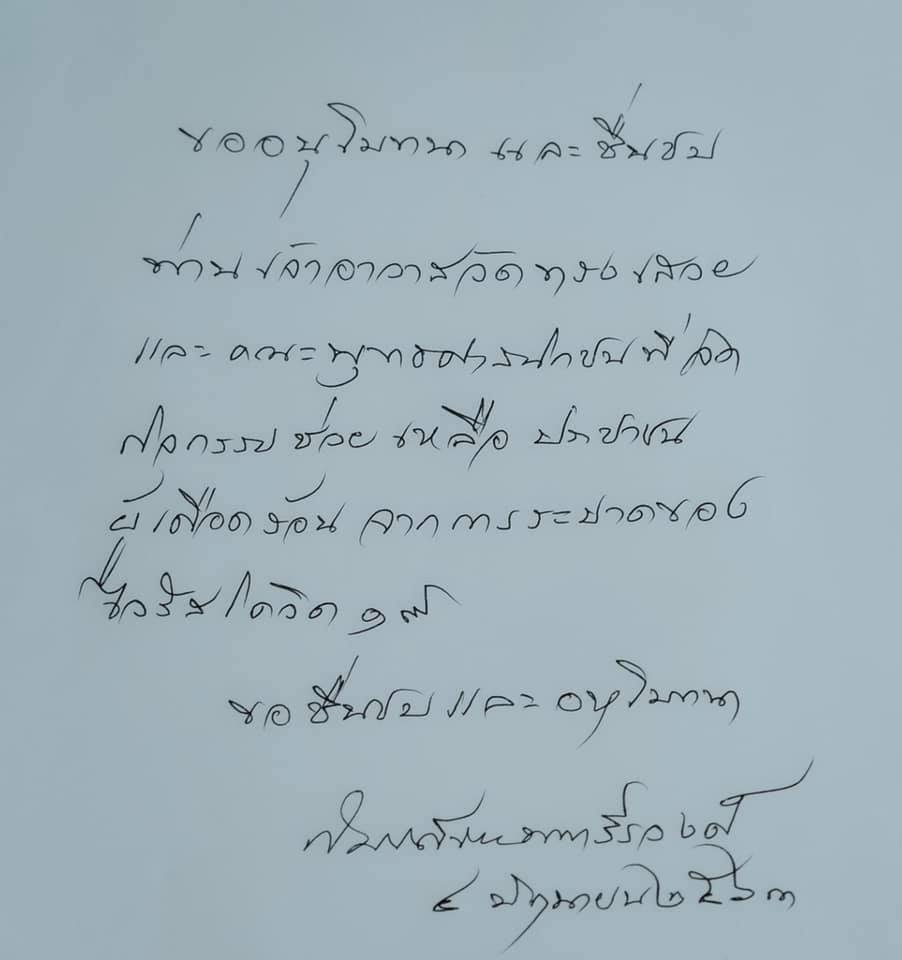 ขออนุโมทนา และชื่นชม
ท่านเจ้าอาวาสวัดทรงเสวย
และ คณะพุทธศาสนิกชน ที่จัด
กิจกรรม ช่วยเหลือ ประชาชน
ผู้เดือดร้อน จากการระบาดของ
ไวรัสโควิด ๑๙
ขอ ชื่นชม และ อนุโมทนา
๔ มิถุนายน ๒๕๖๓